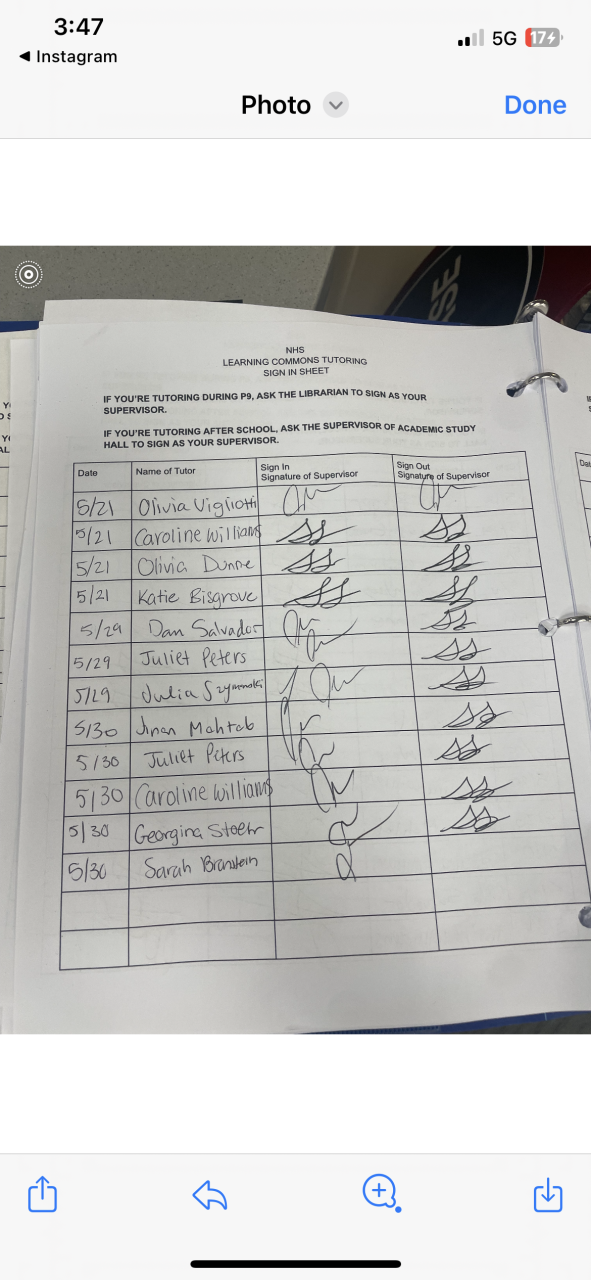 3:47
5G 17
◀ Instagram
Photo
Done
SE
NHS
LEARNING COMMONS TUTORING
SIGN IN SHEET
IF YOU'RE TUTORING DURING P9, ASK THE LIBRARIAN TO SIGN AS YOUR
SUPERVISOR.
IF YOU'RE TUTORING AFTER SCHOOL, ASK THE SUPERVISOR OF ACADEMIC STUDY
HALL TO SIGN AS YOUR SUPERVISOR.
Date Name of Tutor Sign In Signature of Supervisor Sign Out Signature of Supervisor
5/21 Olivia Vigliotti
5/21 Caroline Williams
5/21 Olivia Dunne
5/21 Katie Bisgrove
5/29 Dan Salvador
5/29 Juliet Peters
5/29 Julia Szymanski
5/30 Jinan Mahtab
5/30 Juliet Peters
5/30 Caroline Williams
5/30 Georgina Stoehr
5/30 Sarah